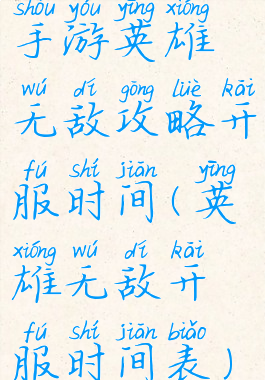 shǒu yóu yīng xióng
手游英雄
wú dí gōng lüè kāi
无敌攻略开
fú shí jiān yīng
服时间(英
xióng wú dí kāi
雄无敌开
fú shí jiān biǎo
服时间表)